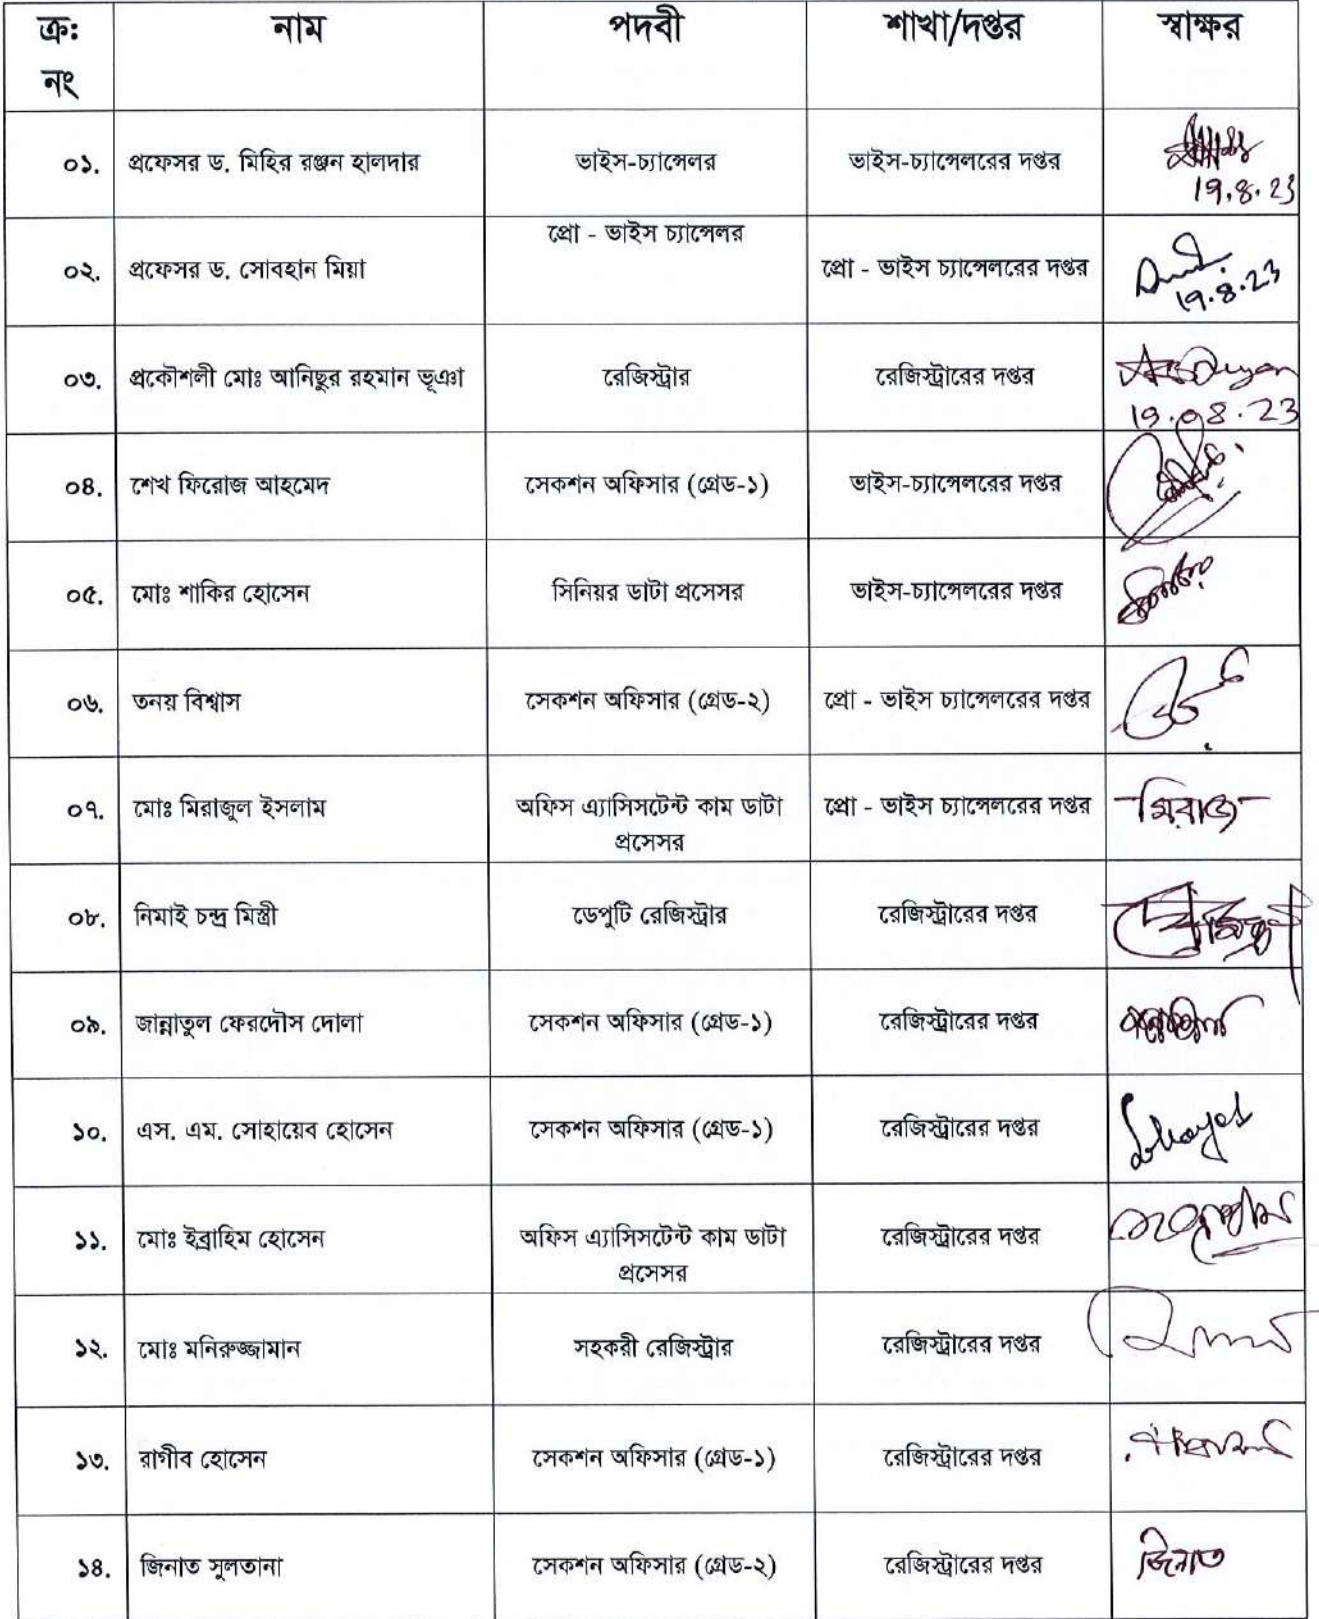 ক্র: নাম পদবী শাখা/দপ্তর স্বাক্ষর
নং
০১. প্রফেসর ড. মিহির রঞ্জন হালদার ভাইস-চ্যান্সেলর ভাইস-চ্যান্সেলরের দপ্তর
19.8.23
প্রো - ভাইস চ্যান্সেলর
০২. প্রফেসর ড. সোবহান মিয়া প্রো - ভাইস চ্যান্সেলরের দপ্তর
19.8.23
০৩. প্রকৌশলী মোঃ আনিছুর রহমান ভূঞা রেজিস্ট্রার রেজিস্ট্রারের দপ্তর
19.08.23
০৪. শেখ ফিরোজ আহমেদ সেকশন অফিসার (গ্রেড-১) ভাইস-চ্যান্সেলরের দপ্তর
০৫. মোঃ শাকির হোসেন সিনিয়র ডাটা প্রসেসর ভাইস-চ্যান্সেলরের দপ্তর
০৬. তনয় বিশ্বাস সেকশন অফিসার (গ্রেড-২) প্রো - ভাইস চ্যান্সেলরের দপ্তর
০৭. মোঃ মিরাজুল ইসলাম অফিস এ্যাসিসটেন্ট কাম ডাটা প্রো - ভাইস চ্যান্সেলরের দপ্তর মিরাজ
প্রসেসর
০৮. নিমাই চন্দ্র মিস্ত্রী ডেপুটি রেজিস্ট্রার রেজিস্ট্রারের দপ্তর
০৯. জান্নাতুল ফেরদৌস দোলা সেকশন অফিসার (গ্রেড-১) রেজিস্ট্রারের দপ্তর
১০. এস. এম. সোহায়েব হোসেন সেকশন অফিসার (গ্রেড-১) রেজিস্ট্রারের দপ্তর
১১. মোঃ ইব্রাহিম হোসেন অফিস এ্যাসিসটেন্ট কাম ডাটা রেজিস্ট্রারের দপ্তর
প্রসেসর
১২. মোঃ মনিরুজ্জামান সহকরী রেজিস্ট্রার রেজিস্ট্রারের দপ্তর
১৩. রাগীব হোসেন সেকশন অফিসার (গ্রেড-১) রেজিস্ট্রারের দপ্তর
১৪. জিনাত সুলতানা সেকশন অফিসার (গ্রেড-২) রেজিস্ট্রারের দপ্তর জিনাত